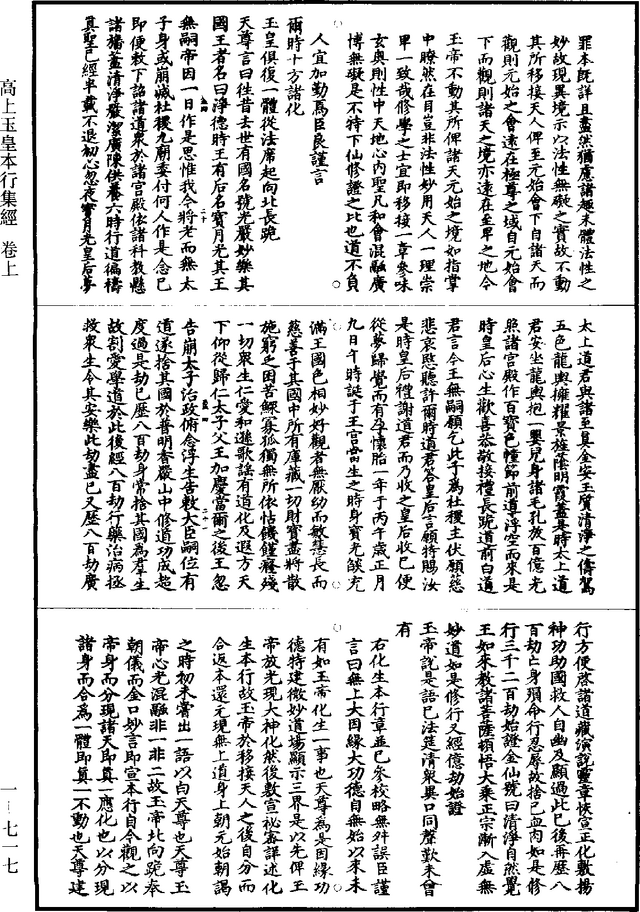 高上玉皇本行集經 卷上
一—七一七
罪本既詳且盡然猶慮諸趣未體法性之
妙故現異境示以法性無礙之實故不動
其所移接天人俾至元始會下自諸天而
觀則元始之會遠在極尊之域自元始會
下而觀則諸天之境亦遠在至卑之地今
玉帝不動其所俾諸天元始之境如指掌
中瞭然在目豈非法性妙用天人一理崇
卑一致哉修學之士宜即移接一章參味
玄奧則性中天地心內聖凡和會混融廣
博無礙是不特下仙修證之比也道不負
人宜加勤焉臣良謹言
爾時十方諸化
玉皇俱復一體從法席起向北長跪
天尊言曰徃昔去世有國名號光嚴妙樂其
國王者名曰淨德時王有后名寶月光其王
無嗣帝因一日作是思惟我今將老而無太
子身或崩滅社稷九廟委付何人作是念已
即便敕下詔諸道衆於諸宮殿依諸科教懸
諸旛蓋清淨嚴潔廣陳供養六時行道徧禱
真聖已經半載不退初心忽夜寶月光皇后夢
太上道君與諸至真金姿玉質清淨之儔駕
五色龍輿擁耀景旌蔭明霞蓋是時太上道
君安坐龍輿抱一嬰兒身諸毛孔放百億光
照諸宮殿作百寶色幢節前導浮空而來是
時皇后心生歡喜恭敬接禮長跪道前白道
君言今王無嗣願乞此子為社稷主伏願慈
悲哀愍聽許爾時道君答皇后言願特賜汝
是時皇后禮謝道君而乃收之皇后收已便
從夢歸覺而有孕懷胎一年于丙午歲正月
九日午時誕于王宮當生之時身寶光燄充
滿王國色相妙好觀者無厭幼而敏慧長而
慈善于其國中所有庫藏一切財寶盡將散
施窮乏困苦鰥寡孤獨無所依怙饑饉癃殘
一切衆生仁愛和遜歌謠有道化及遐方天
下仰從歸仁太子父王加慶當爾之後王忽
告崩太子治政俯念浮生告敕大臣嗣位有
道遂捨其國於普明香嚴山中修道功成超
度過是劫已歷八百劫身常捨其國為羣生
故割愛學道於此後經八百劫行藥治病拯
救衆生令其安樂此劫盡已又歷八百劫廣
行方便啓諸道藏演說靈章恢宣正化敷揚
神功助國救人自幽及顯過此已後再歷八
百劫亡身殞命行忍辱故捨己血肉如是修
行三千二百劫始證金仙號曰清淨自然覺
王如來教諸菩薩頓悟大乘正宗漸入虛無
妙道如是修行又經億劫始證
玉帝說是語已法筵清衆異口同聲歎未曾
有
右化生本行章並已參校略無舛誤臣謹
言曰無上大因緣大功德自無始以來未
有如玉帝化生一事也天尊為是因緣功
德特建微妙道場顯示三界是以先俾玉
帝放光現大神化然後敷宣祕審詳述化
生本行故玉帝於移接天人之後自分而
合返本還元現無上道身上朝元始朝謁
之時初未嘗出一語以白天尊也天尊玉
帝心光混融非一非二故玉帝北向跪奉
朝儀而金口妙言即宣本行自今觀之以
帝身而分現諸天即真一應化也以分現
諸身而合為一體即真一不動也天尊建